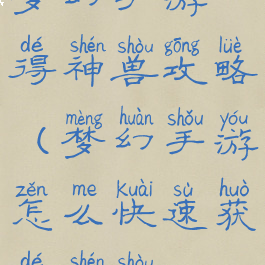 dé shén shòu gōng lüè
得神兽攻略
mèng huàn shǒu yóu
（梦幻手游
zěn me kuài sù huò
怎么快速获
dé shén shòu